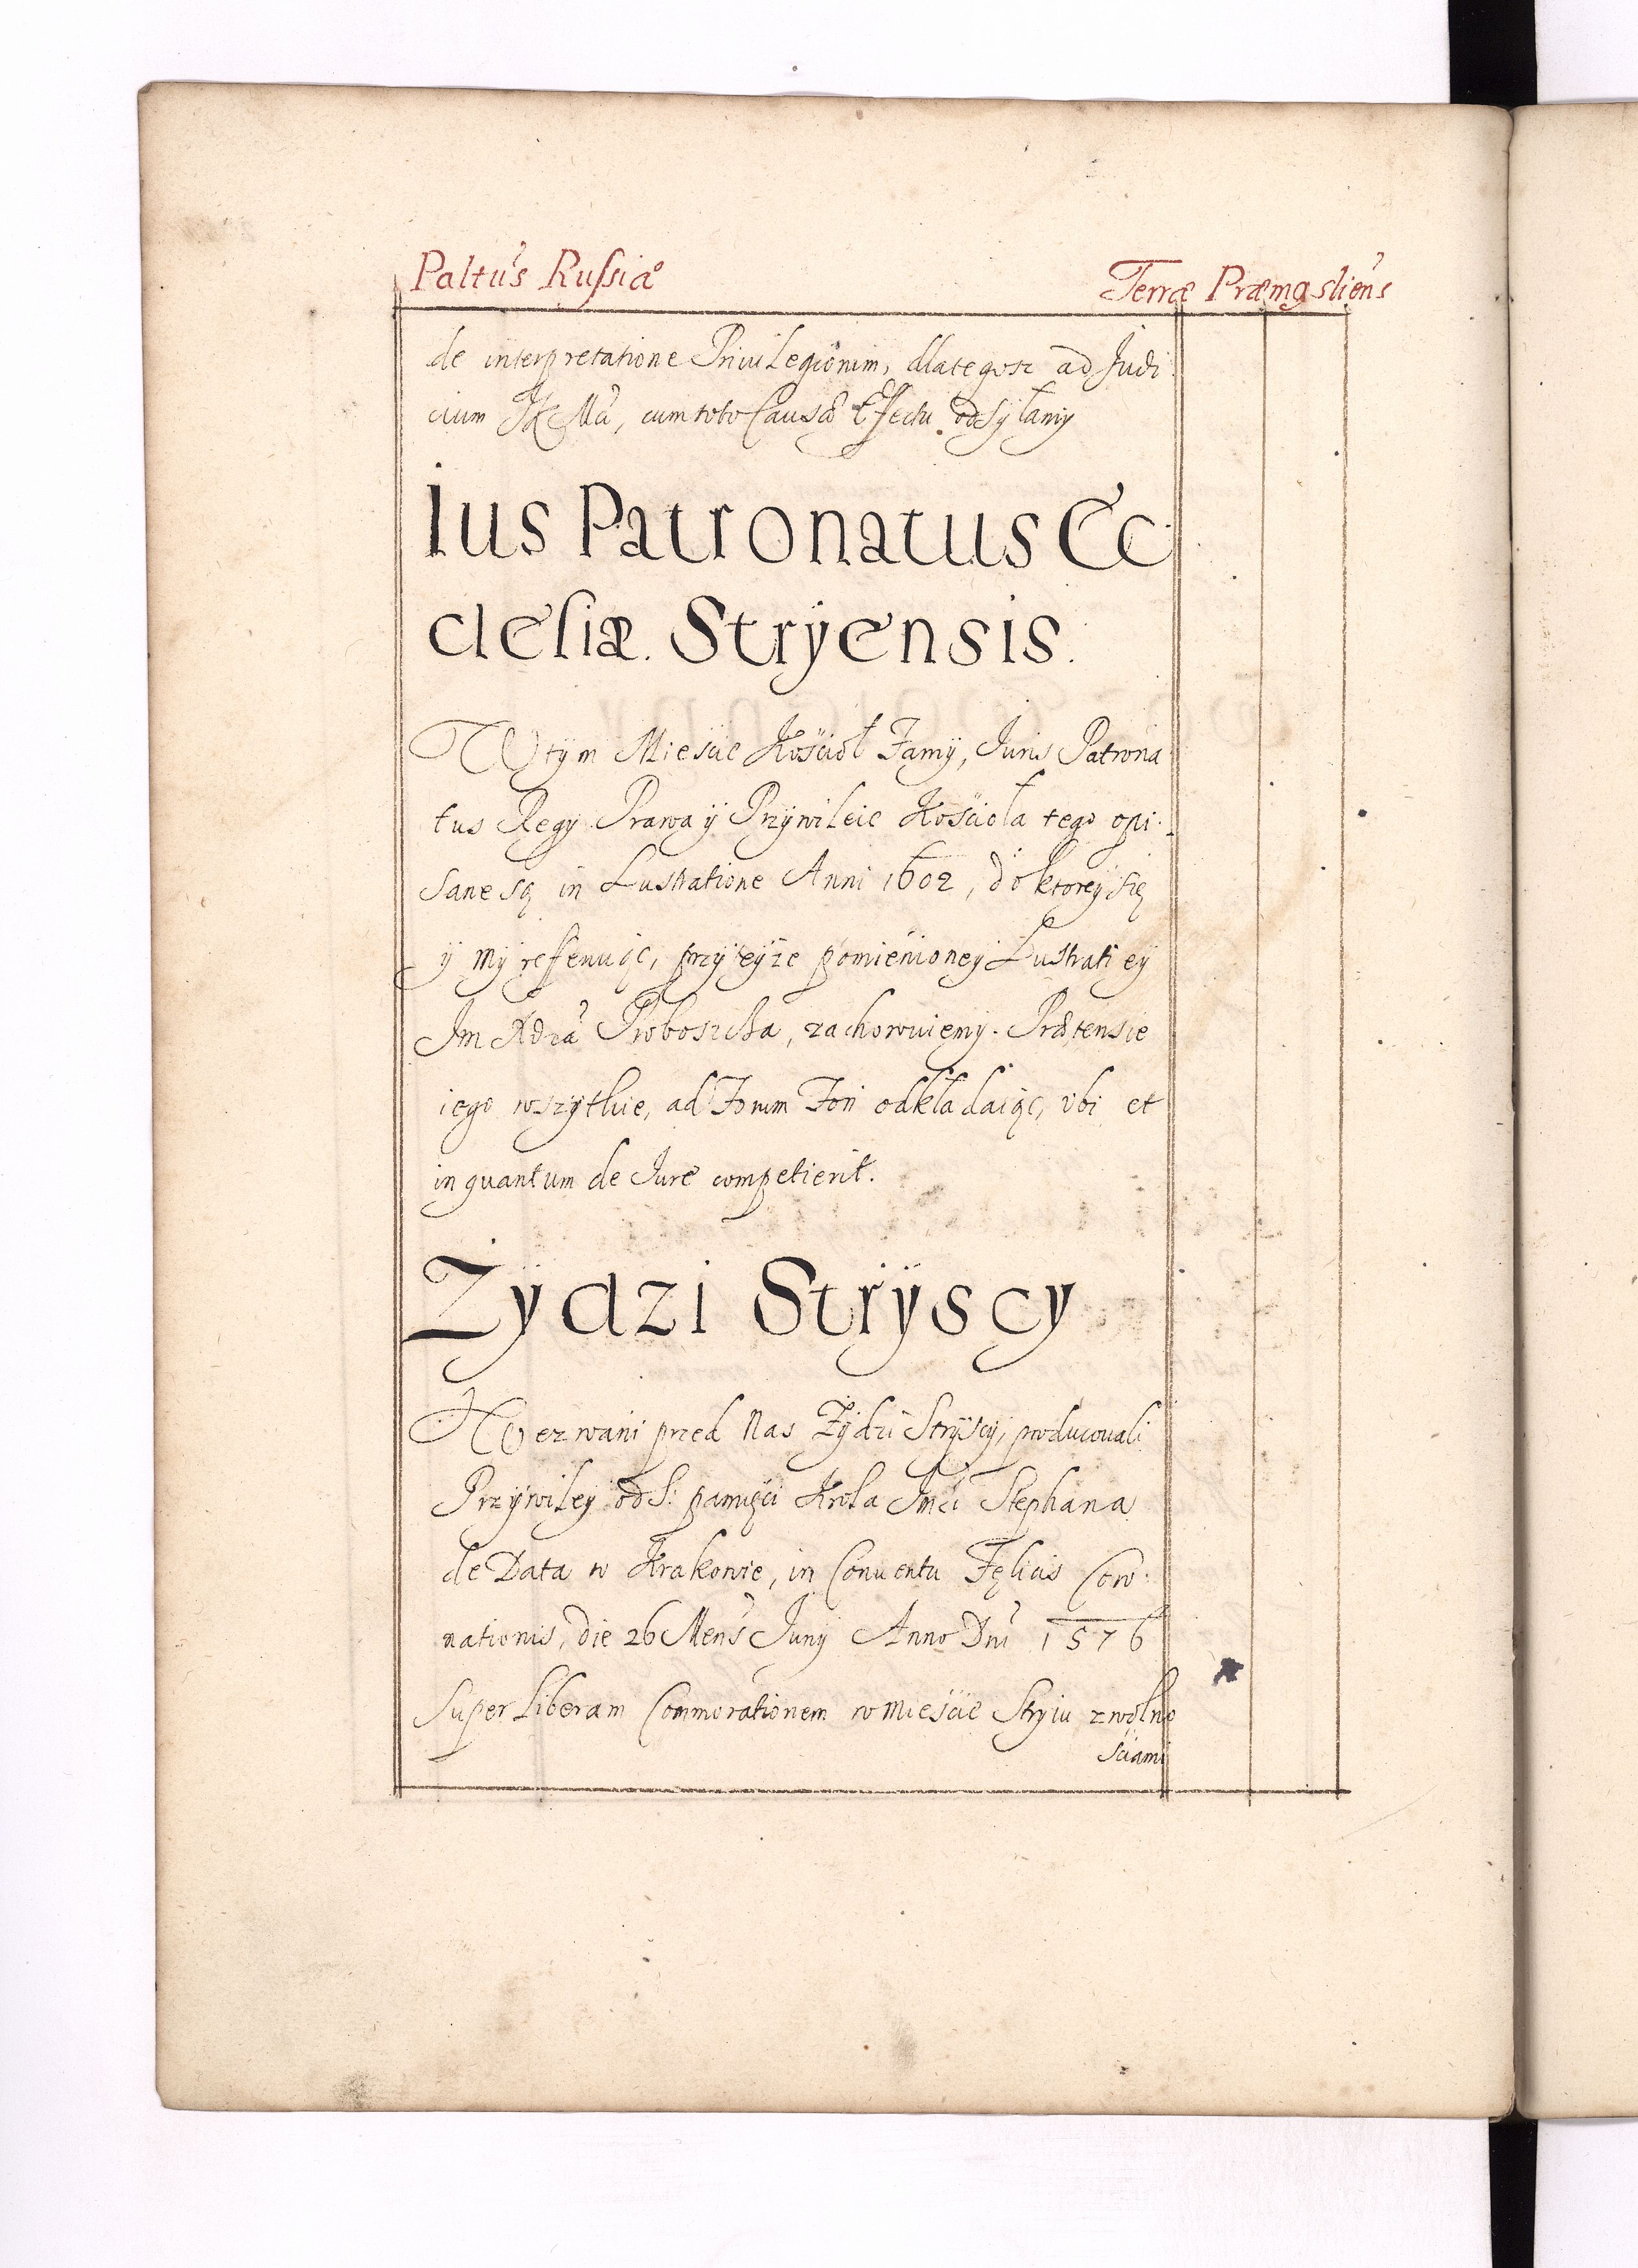 Paltu's Russiæ Terræ Præmysliens
de interpretatione Privilegiorum, dlategosz ad Judi
cium JKMci, cum toto Causæ Effectu odsyłamy
Ius Patronatus Ec
clesiæ Stryensis.
W tym Miescie Kościoł Farny, Juris Patrona
tus Regy Prawa y Przywileie Kościoła tego opi
sane są in Lustratione Anni 1602, do ktorey się
y my referuiąc, przy teyże pomienioney Lustratiey
Im Xdza Proboszcza, zachowuiemy. Prætensie
iego wszytkie, ad Forum Fori odkładaiąc, vbi et
in quantum de Jure competierit.
Zydzi Stryscy
Wezwani przed Nas Żydzi Stryscy, producowali
Przywiley od S: pamięci Krola Jmci Stephana
de Data w Krakowie, in Conventu Felicis Coro
nationis, die 26 Mens Juny Anno Dni 1576
super Liberam Commorationem w miescie Stryiu z wolno
sciami